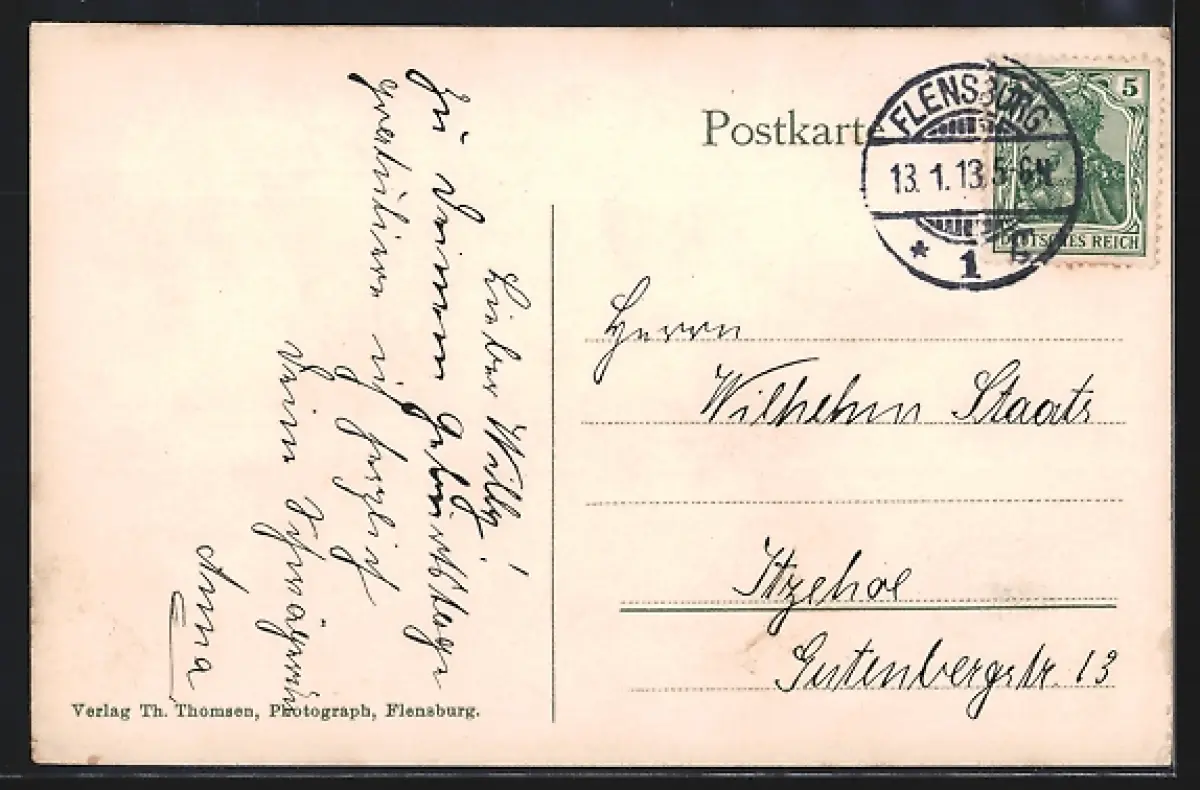 Postkarte
FLENSBURG
13.1.13. 5-6 N.
* 1 c
5
DEUTSCHES REICH
Lieber Willy!
Zu Deinem Geburtstage
gratuliere ich herzlich
Deine Schwägerin
Anna
Herrn
Wilhelm Staats
Itzehoe
Gutenbergstr. 13
Verlag Th. Thomsen, Photograph, Flensburg.